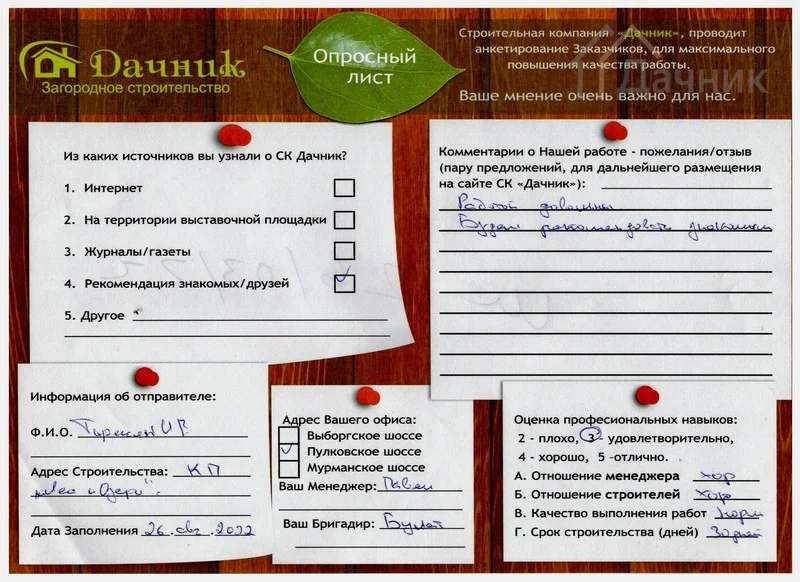 Дачник
Загородное строительство
Опросный
лист
Строительная компания «Дачник», проводит
анкетирование Заказчиков, для максимального
повышения качества работы.
Ваше мнение очень важно для нас.
Дачник
Из каких источников вы узнали о СК Дачник?
1. Интернет
2. На территории выставочной площадки
3. Журналы/газеты
4. Рекомендация знакомых/друзей
5. Другое
Комментарии о Нашей работе - пожелания/отзыв
(пару предложений, для дальнейшего размещения
на сайте СК «Дачник»):
Работой довольны
Будем рекомендовать знакомым
Информация об отправителе:
Ф.И.О.
Адрес Строительства: КП
"Лес и Озеро".
Дата Заполнения 26.авг.2022
Адрес Вашего офиса:
Выборгское шоссе
Пулковское шоссе
Мурманское шоссе
Ваш Менеджер: Павел
Ваш Бригадир: Булат
Оценка професиональных навыков:
2 - плохо, 3 удовлетворительно,
4 - хорошо, 5 -отлично.
А. Отношение менеджера хор
Б. Отношение строителей хор
В. Качество выполнения работ норм
Г. Срок строительства (дней) 30 дней